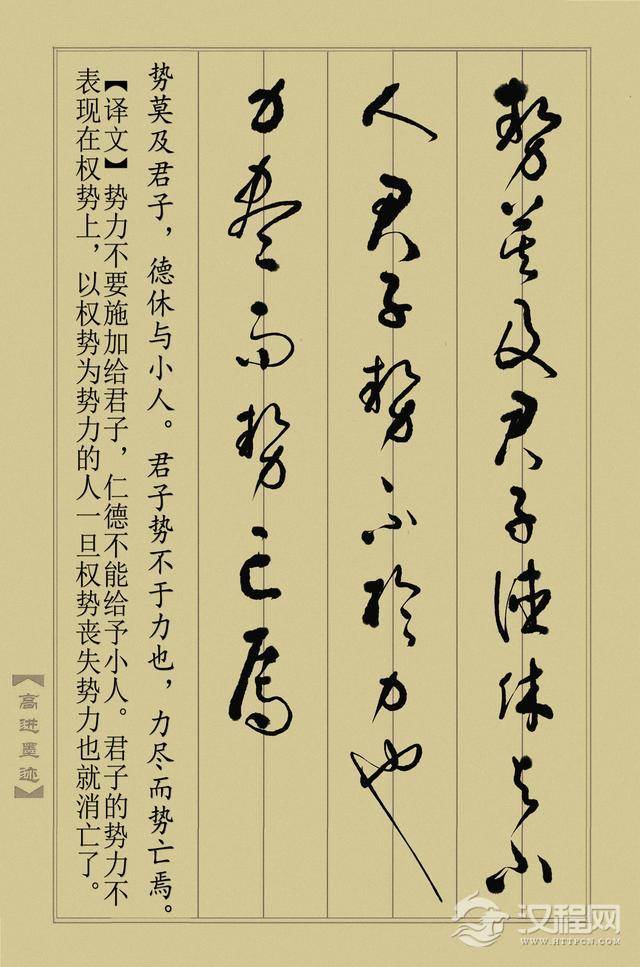 勢莫及君子德休与小
人君子勢不於力也
力尽而勢亡焉
势莫及君子，德休与小人。君子势不于力也，力尽而势亡焉。
【译文】势力不要施加给君子，仁德不能给予小人。君子的势力不
表现在权势上，以权势为势力的人一旦权势丧失势力也就消亡了。
【高进墨迹】
汉程网
WWW.HTTPCN.COM